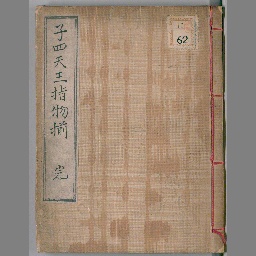 子四天王指物揃 完
62